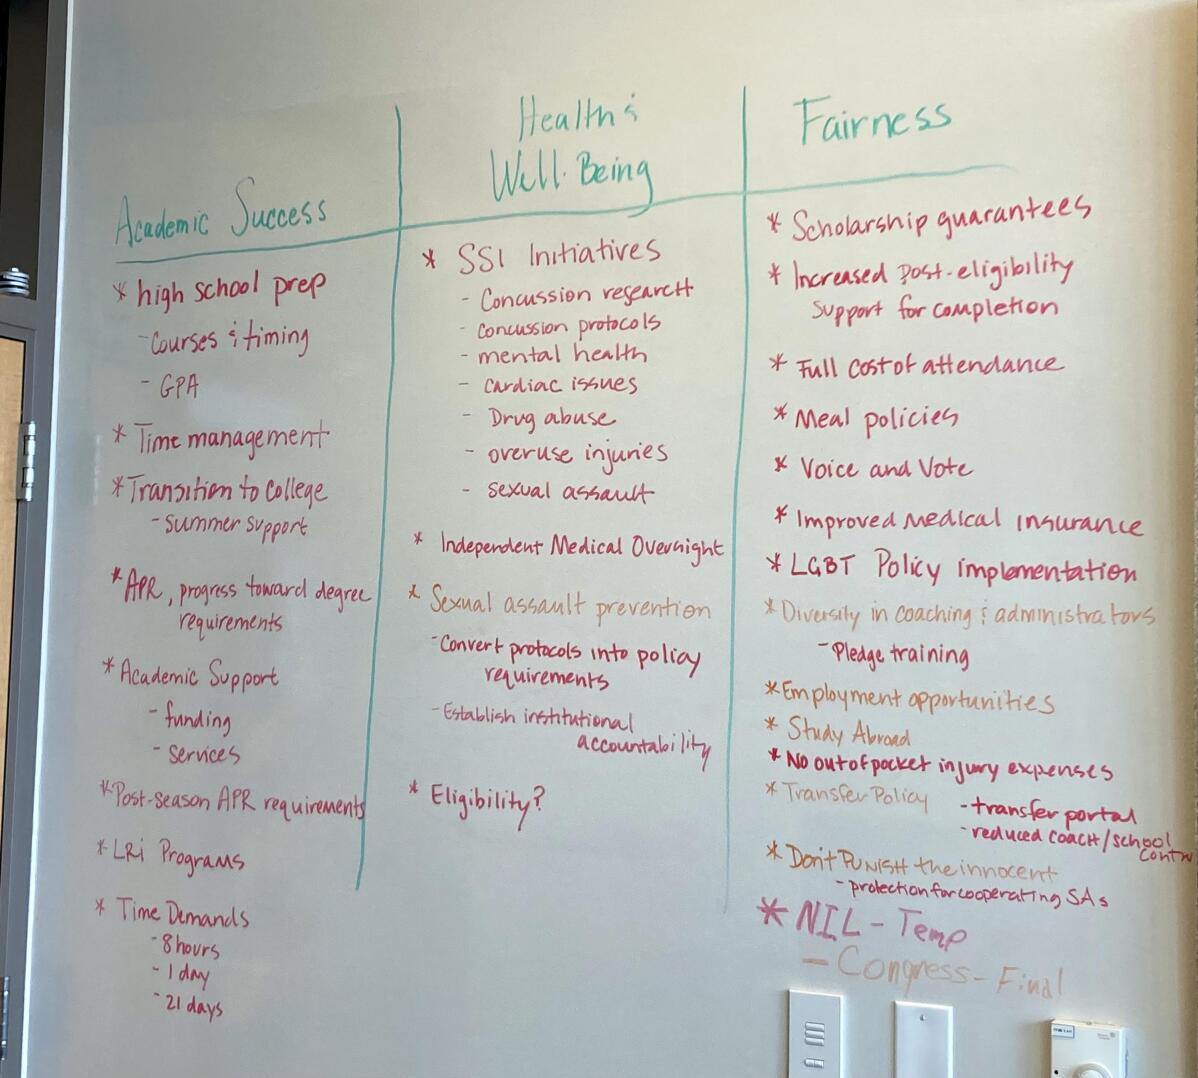 Academic Success
* high school prep
- Courses & timing
- GPA
* Time management
* Transition to College
- summer support
* APR, progress toward degree
requirements
* Academic Support
- funding
- services
* Post-season APR requirements
* LRi Programs
* Time Demands
- 8 hours
- 1 day
- 21 days
Health &
Well-Being
* SSI Initiatives
- Concussion research
- concussion protocols
- mental health
- cardiac issues
- Drug abuse
- overuse injuries
- sexual assault
* Independent Medical Oversight
* Sexual assault prevention
- Convert protocols into policy
requirements
- Establish institutional
accountability
* Eligibility?
Fairness
* Scholarship guarantees
* Increased post-eligibility
support for completion
* Full cost of attendance
* Meal policies
* Voice and Vote
* Improved Medical insurance
* LGBT Policy implementation
* Diversity in coaching & administrators
- Pledge training
* Employment opportunities
* Study Abroad
* No out of pocket injury expenses
* Transfer Policy - transfer portal
- reduced coach/school
* Don't Punish the innocent
- protection for cooperating SAs
* NIL - Temp
- Congress - Final